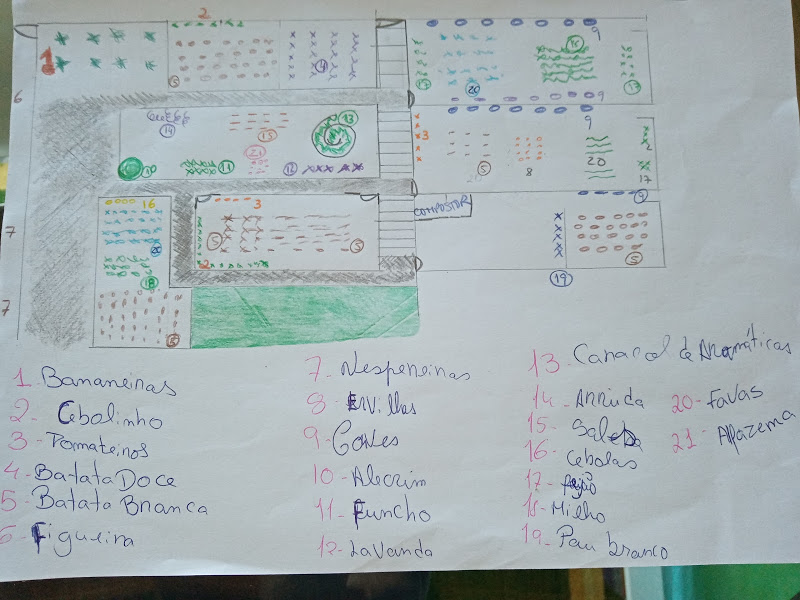 2
1
5
4
6
14
15
13
10
11
21
12
7
16
3
5
20
18
2
5
5
7
9
15
13
20
13
9
9
3
5
8
20
2
17
9
COMPOSTOR
19
5
1 Bananeiras
2 - Cebolinho
3 - Tomateiros
4 - Batata Doce
5 - Batata Branca
6 - Figueira
7 - Nespereiras
8 - Ervilhas
9 - Couves
10 - Alecrim
11 - Funcho
12 - Lavanda
13 - Caracol de Aromáticas
14 - Arruda
15 - Salsa
16 - Cebolas
17 - feijão
18 - Milho
19 - Pau branco
20 - Favas
21 - Alfazema